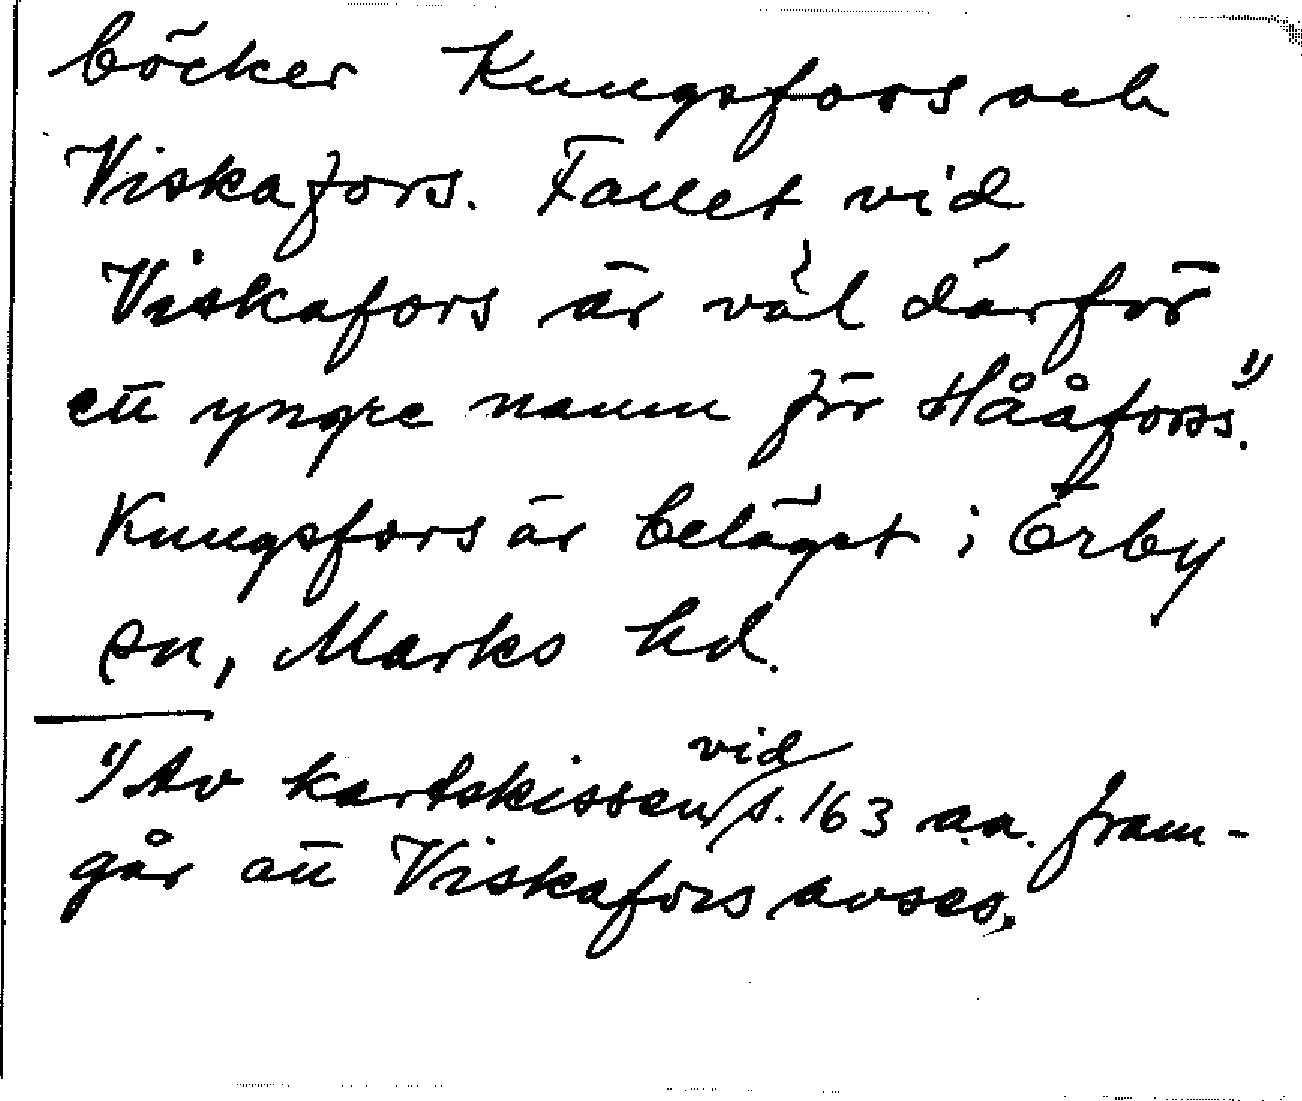 böcker Kungsfors och
Viskafors. Fallet vid
Viskafors är väl därför
ett yngre namn för Hååforss.¹⁾
Kungsfors är beläget i Örby
sn, Marks hd.
¹⁾ Av kartskissen vid s. 163 a.a. fram-
går att Viskafors avses.